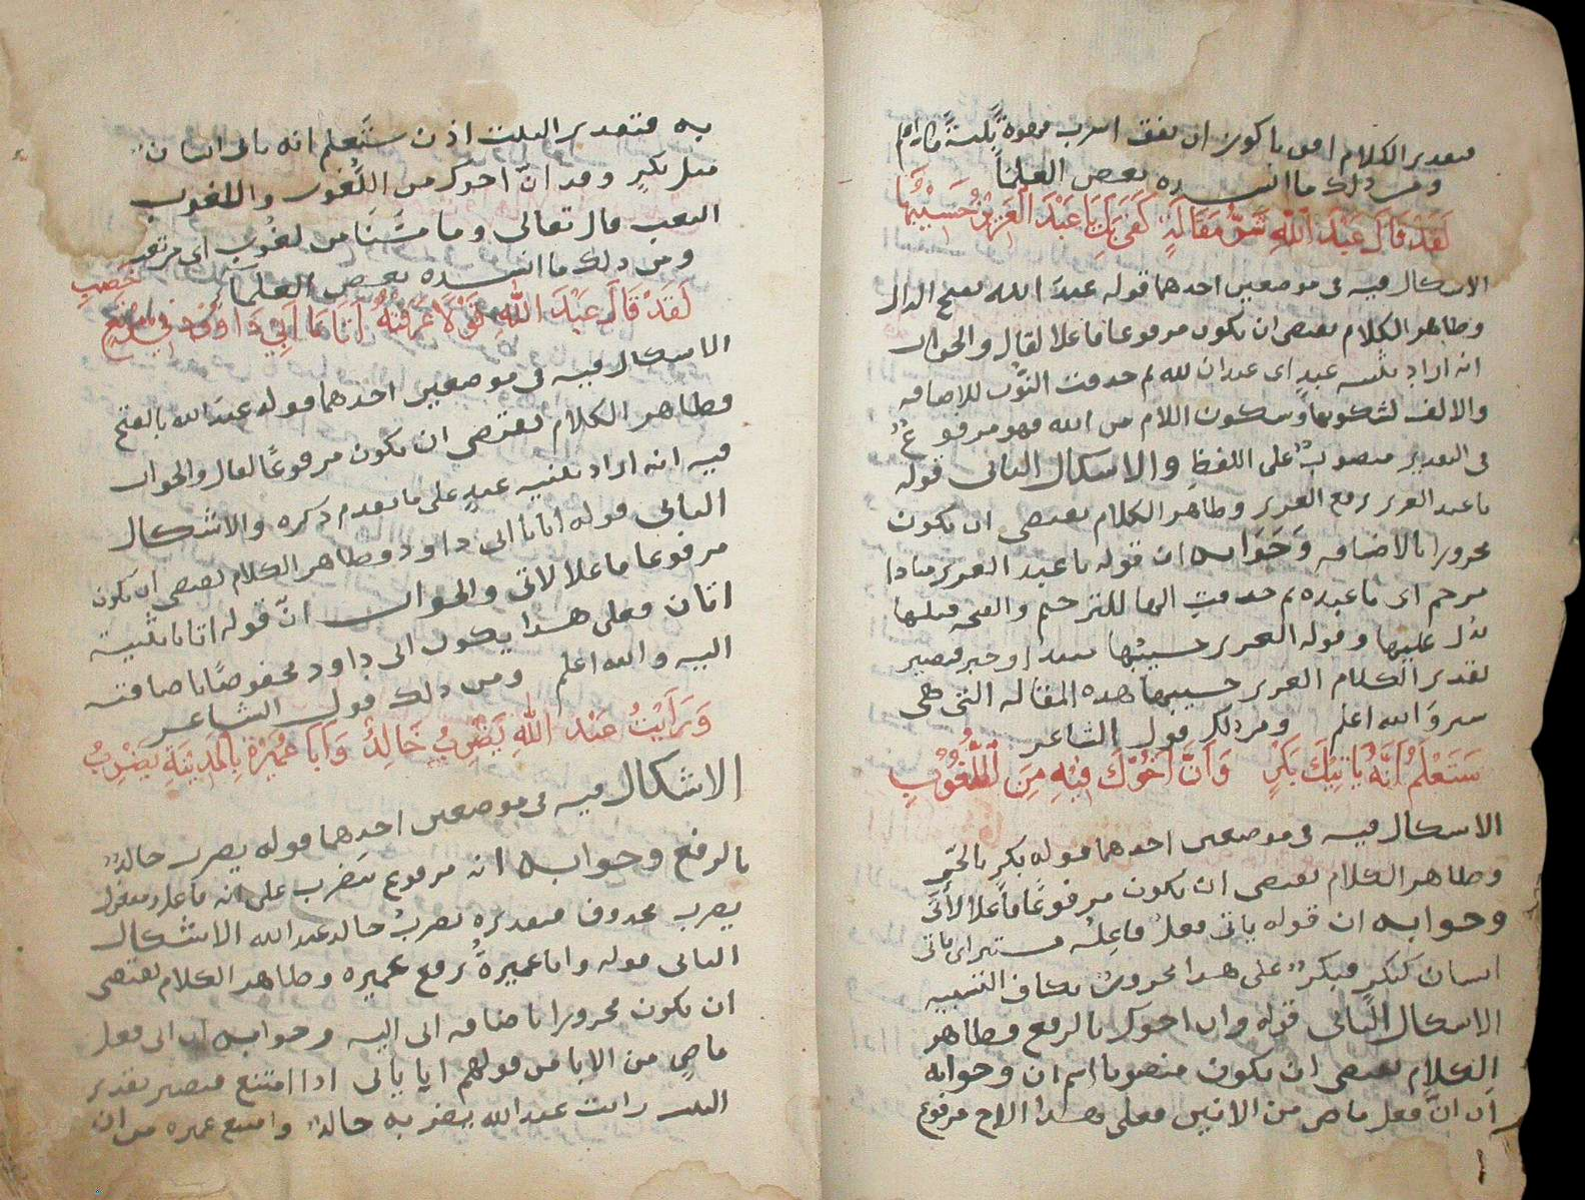 فتقدير الكلام
ومن ذلك ما انشده بعض العلماء
لَقَدْ قَالَ عَبْدَ اللهِ شَرَّ مَقَالَةٍ كَفَى بِكَ يَا عَبْدَ الْعَزِيْزُ حَسِيْبُهَا
الاشكال فيه فى موضعين احدهما قوله عبدَ الله بفتح الدال
وظاهر الكلام يقتضى ان يكون مرفوعا فاعلا لقال والجواب
انه اراد تثنيه عبدٍ اى عبدان لله ثم حذفت النّون للاضافه
والالف لسكونها وسكون اللام من الله فهو مرفوعٌ
فى التقدير منصوبٌ على اللفظ والاشكال الثانى قوله
يا عبد العزيز برفع العزيز وظاهر الكلام يقتضى ان يكون
مجرورا بالاضافهِ وَجَوَابه ان قوله يا عبد العزيز منادا
مرخم اى يا عبده ثم حذفت الها للترخيم والفتحه قبلها
تدُل عليها وقوله العزيز حسيبُها مبتداٌ وخبر فيصير
تقدير الكلام العزيز حسيبها هذه المقاله التى هى
شر وَالله اعلم ومن ذلك قول الشاعر
سَتَعْلَمُ أنَّهُ يَاتِيْكَ بَكْرٍ وَاَنَّ اَخُوْكَ فِيْهِ مِنَ اللُّغُوْبِ
الاشكال فيه فى موضعين احدهما قوله بكرٍ بالجّر
وظاهر الكلام يقتضى ان يكون مرفوعًا فاعلا لأتى
وجوابه ان قوله ياتى فعلٌ فاعِلُه مستتر اى ياتى
انسان كبكرٍ فبكرٌ على هذا مجرورٌ بكاف التشبيه
الاشكال الثانى قوله وان اخوك بالرفع وظاهر
الكلام يقتضى ان يكون منصوبا اسم ان وجوابه
ان انّ فعل ماض من الانين فعلى هذا الاخ مرفوع
به فتقدير البيت اذن ستَعلم انه ياتى انسانٌ
مثل بكرٍ وقد انّ اخوك من اللُّغوب واللغوب
التعب قال تعالى وما مسَّنَا من لغُوبٍ اى من تعب
ومن ذلك ما انشده بعض العلماء
لَقَدْ قَالَ عَبْدَ اللهِ قَوْلًا عَرَفْتُهُ اَتَانَا اَبِيْ دَاوُدَ فِي مَرْتَعٍ خَصِبِ
الاشكال فيه فى موضعين احدهما قوله عبدَ الله بالفتح
وظاهر الكلام يقتضى ان يكون مرفوعًا لقال والجواب
فيه انه اراد تثنيه عبدٍ على ما تقدم ذكره والاشكال
الثانى قوله اتانا ابى داود وظاهر الكلام يقتضى ان يكون
مرفوعا فاعلا لاتى والجواب انّ قوله اتانا تثنية
اتان فعلى هذا يكون ابى داود مخفوضًا باضافته
اليه والله اعلم ومن ذلك قول الشاعر
وَرَاَيْتُ عَبْدَ اللهِ يَضْرِبُ خَالِدٌ وَاَبَا عُمَيْرَةُ بِالْمَدِيْنَةِ يَضْرِبُ
الاشكال فيه فى موضعين احدهما قوله يضرب خالدٌ
بالرفع وجوابه انه مرفوع بيَضرب على انه فاعل ومفعول
يضرب محذوف فتقديره يضربُ خالد عبد الله الاشكال
الثانى قوله وابا عميرةُ برفع عميره وظاهر الكلام يقتضى
ان يكون مجرورا باضافه ابى اليه وجوابه ان ابى فعل
ماضٍ من الابا من قولهم ابا يابى اذا امتنع فيصير تقدير
البيت رايت عبد الله يضربه خالدٌ وامتنع عميره من ان